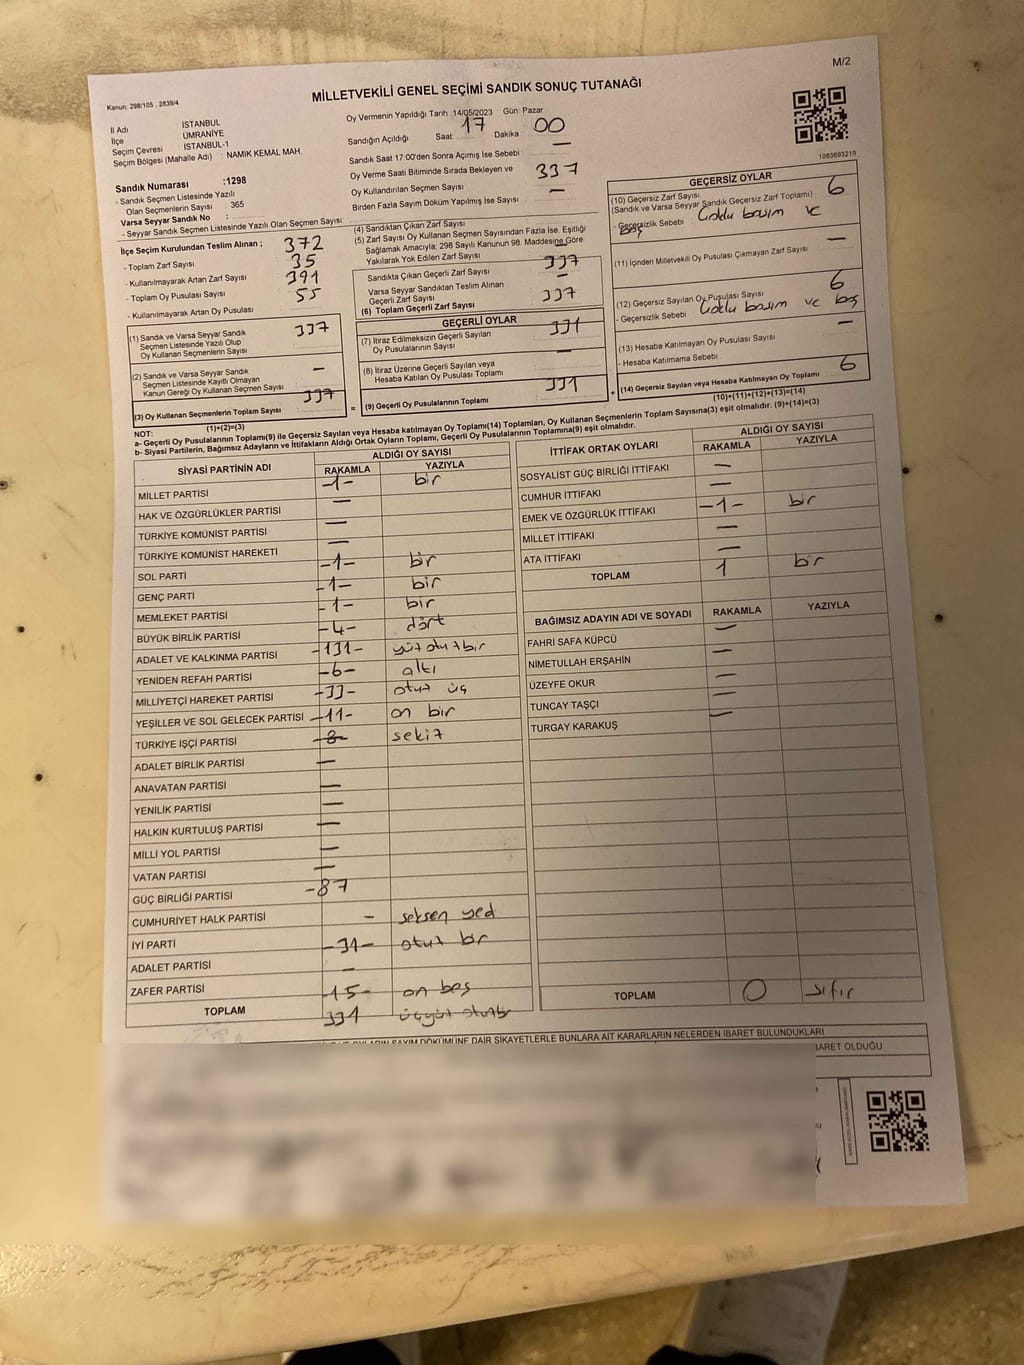 M/2
Kanun: 298/105 , 2839/4
MİLLETVEKİLİ GENEL SEÇİMİ SANDIK SONUÇ TUTANAĞI
İl Adı : İSTANBUL
İlçe : ÜMRANİYE
Seçim Çevresi : İSTANBUL-1
Seçim Bölgesi (Mahalle Adı) : NAMIK KEMAL MAH.
Sandık Numarası :1298
- Sandık Seçmen Listesinde Yazılı
Olan Seçmenlerin Sayısı : 365
Varsa Seyyar Sandık No :
- Seyyar Sandık Seçmen Listesinde Yazılı Olan Seçmen Sayısı :
İlçe Seçim Kurulundan Teslim Alınan ;
- Toplam Zarf Sayısı 372
- Kullanılmayarak Artan Zarf Sayısı 35
- Toplam Oy Pusulası Sayısı 391
- Kullanılmayarak Artan Oy Pusulası 55
(1) Sandık ve Varsa Seyyar Sandık
Seçmen Listesinde Yazılı Olup
Oy Kullanan Seçmenlerin Sayısı 337
(2) Sandık ve Varsa Seyyar Sandık
Seçmen Listesinde Kayıtlı Olmayan
Kanun Gereği Oy Kullanan Seçmen Sayısı —
(3) Oy Kullanan Seçmenlerin Toplam Sayısı 337
(1)+(2)=(3)
Oy Vermenin Yapıldığı Tarih :14/05/2023 Gün: Pazar
Sandığın Açıldığı Saat 17 Dakika 00
Sandık Saat 17:00'den Sonra Açımış İse Sebebi —
Oy Verme Saati Bitiminde Sırada Bekleyen ve
Oy Kullandırılan Seçmen Sayısı 337
Birden Fazla Sayım Döküm Yapılmış İse Sayısı —
(4) Sandıktan Çıkan Zarf Sayısı
(5) Zarf Sayısı Oy Kullanan Seçmen Sayısından Fazla İse, Eşitliği
Sağlamak Amacıyla; 298 Sayılı Kanunun 98. Maddesine Göre
Yakılarak Yok Edilen Zarf Sayısı —
Sandıkta Çıkan Geçerli Zarf Sayısı 337
Varsa Seyyar Sandıktan Teslim Alınan
Geçerli Zarf Sayısı —
(6) Toplam Geçerli Zarf Sayısı 337
GEÇERLİ OYLAR
(7) İtiraz Edilmeksizin Geçerli Sayılan
Oy Pusulalarının Sayısı 331
(8) İtiraz Üzerine Geçerli Sayılan veya
Hesaba Katılan Oy Pusulası Toplamı —
= (9) Geçerli Oy Pusulalarının Toplamı 331 +
1083693219
GEÇERSİZ OYLAR
(10) Geçersiz Zarf Sayısı
(Sandık ve Varsa Seyyar Sandık Geçersiz Zarf Toplamı) 6
- Geçersizlik Sebebi Çoklu basım ve
boş
(11) İçinden Milletvekili Oy Pusulası Çıkmayan Zarf Sayısı —
(12) Geçersiz Sayılan Oy Pusulası Sayısı 6
- Geçersizlik Sebebi Çoklu basım ve boş
(13) Hesaba Katılmayan Oy Pusulası Sayısı —
- Hesaba Katılmama Sebebi
(14) Geçersiz Sayılan veya Hesaba Katılmayan Oy Toplamı 6
(10)+(11)+(12)+(13)=(14)
NOT:
a- Geçerli Oy Pusulalarının Toplamı(9) ile Geçersiz Sayılan veya Hesaba katılmayan Oy Toplamı(14) Toplamları, Oy Kullanan Seçmenlerin Toplam Sayısına(3) eşit olmalıdır. (9)+(14)=(3)
b- Siyasi Partilerin, Bağımsız Adayların ve İttifakların Aldığı Ortak Oyların Toplamı, Geçerli Oy Pusulalarının Toplamına(9) eşit olmalıdır.
SİYASİ PARTİNİN ADI ALDIĞI OY SAYISI
RAKAMLA YAZIYLA
MİLLET PARTİSİ -1- bir
HAK VE ÖZGÜRLÜKLER PARTİSİ —
TÜRKİYE KOMÜNİST PARTİSİ —
TÜRKİYE KOMÜNİST HAREKETİ —
SOL PARTİ -1- bir
GENÇ PARTİ -1- bir
MEMLEKET PARTİSİ -1- bir
BÜYÜK BİRLİK PARTİSİ -4- dört
ADALET VE KALKINMA PARTİSİ -131- yüz otuz bir
YENİDEN REFAH PARTİSİ -6- altı
MİLLİYETÇİ HAREKET PARTİSİ -33- otuz üç
YEŞİLLER VE SOL GELECEK PARTİSİ -11- on bir
TÜRKİYE İŞÇİ PARTİSİ -8- sekiz
ADALET BİRLİK PARTİSİ —
ANAVATAN PARTİSİ —
YENİLİK PARTİSİ —
HALKIN KURTULUŞ PARTİSİ —
MİLLİ YOL PARTİSİ —
VATAN PARTİSİ —
GÜÇ BİRLİĞİ PARTİSİ -87
CUMHURİYET HALK PARTİSİ - seksen yed
İYİ PARTİ -31- otuz bir
ADALET PARTİSİ —
ZAFER PARTİSİ -15- on beş
TOPLAM 331 üçyüz otuzbir
İTTİFAK ORTAK OYLARI ALDIĞI OY SAYISI
RAKAMLA YAZIYLA
SOSYALİST GÜÇ BİRLİĞİ İTTİFAKI —
CUMHUR İTTİFAKI —
EMEK VE ÖZGÜRLÜK İTTİFAKI -1- bir
MİLLET İTTİFAKI —
ATA İTTİFAKI —
TOPLAM 1 bir
BAĞIMSIZ ADAYIN ADI VE SOYADI RAKAMLA YAZIYLA
FAHRİ SAFA KÜPCÜ —
NİMETULLAH ERŞAHİN —
ÜZEYFE OKUR —
TUNCAY TAŞÇI —
TURGAY KARAKUŞ —
TOPLAM 0 sıfır
SAYIM DÖKÜMÜNE DAİR ŞİKAYETLERLE BUNLARA AİT KARARLARIN NELERDEN İBARET BULUNDUKLARI
İBARET OLDUĞU